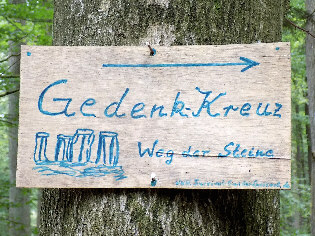 Gedenk-Kreuz
Weg der Steine